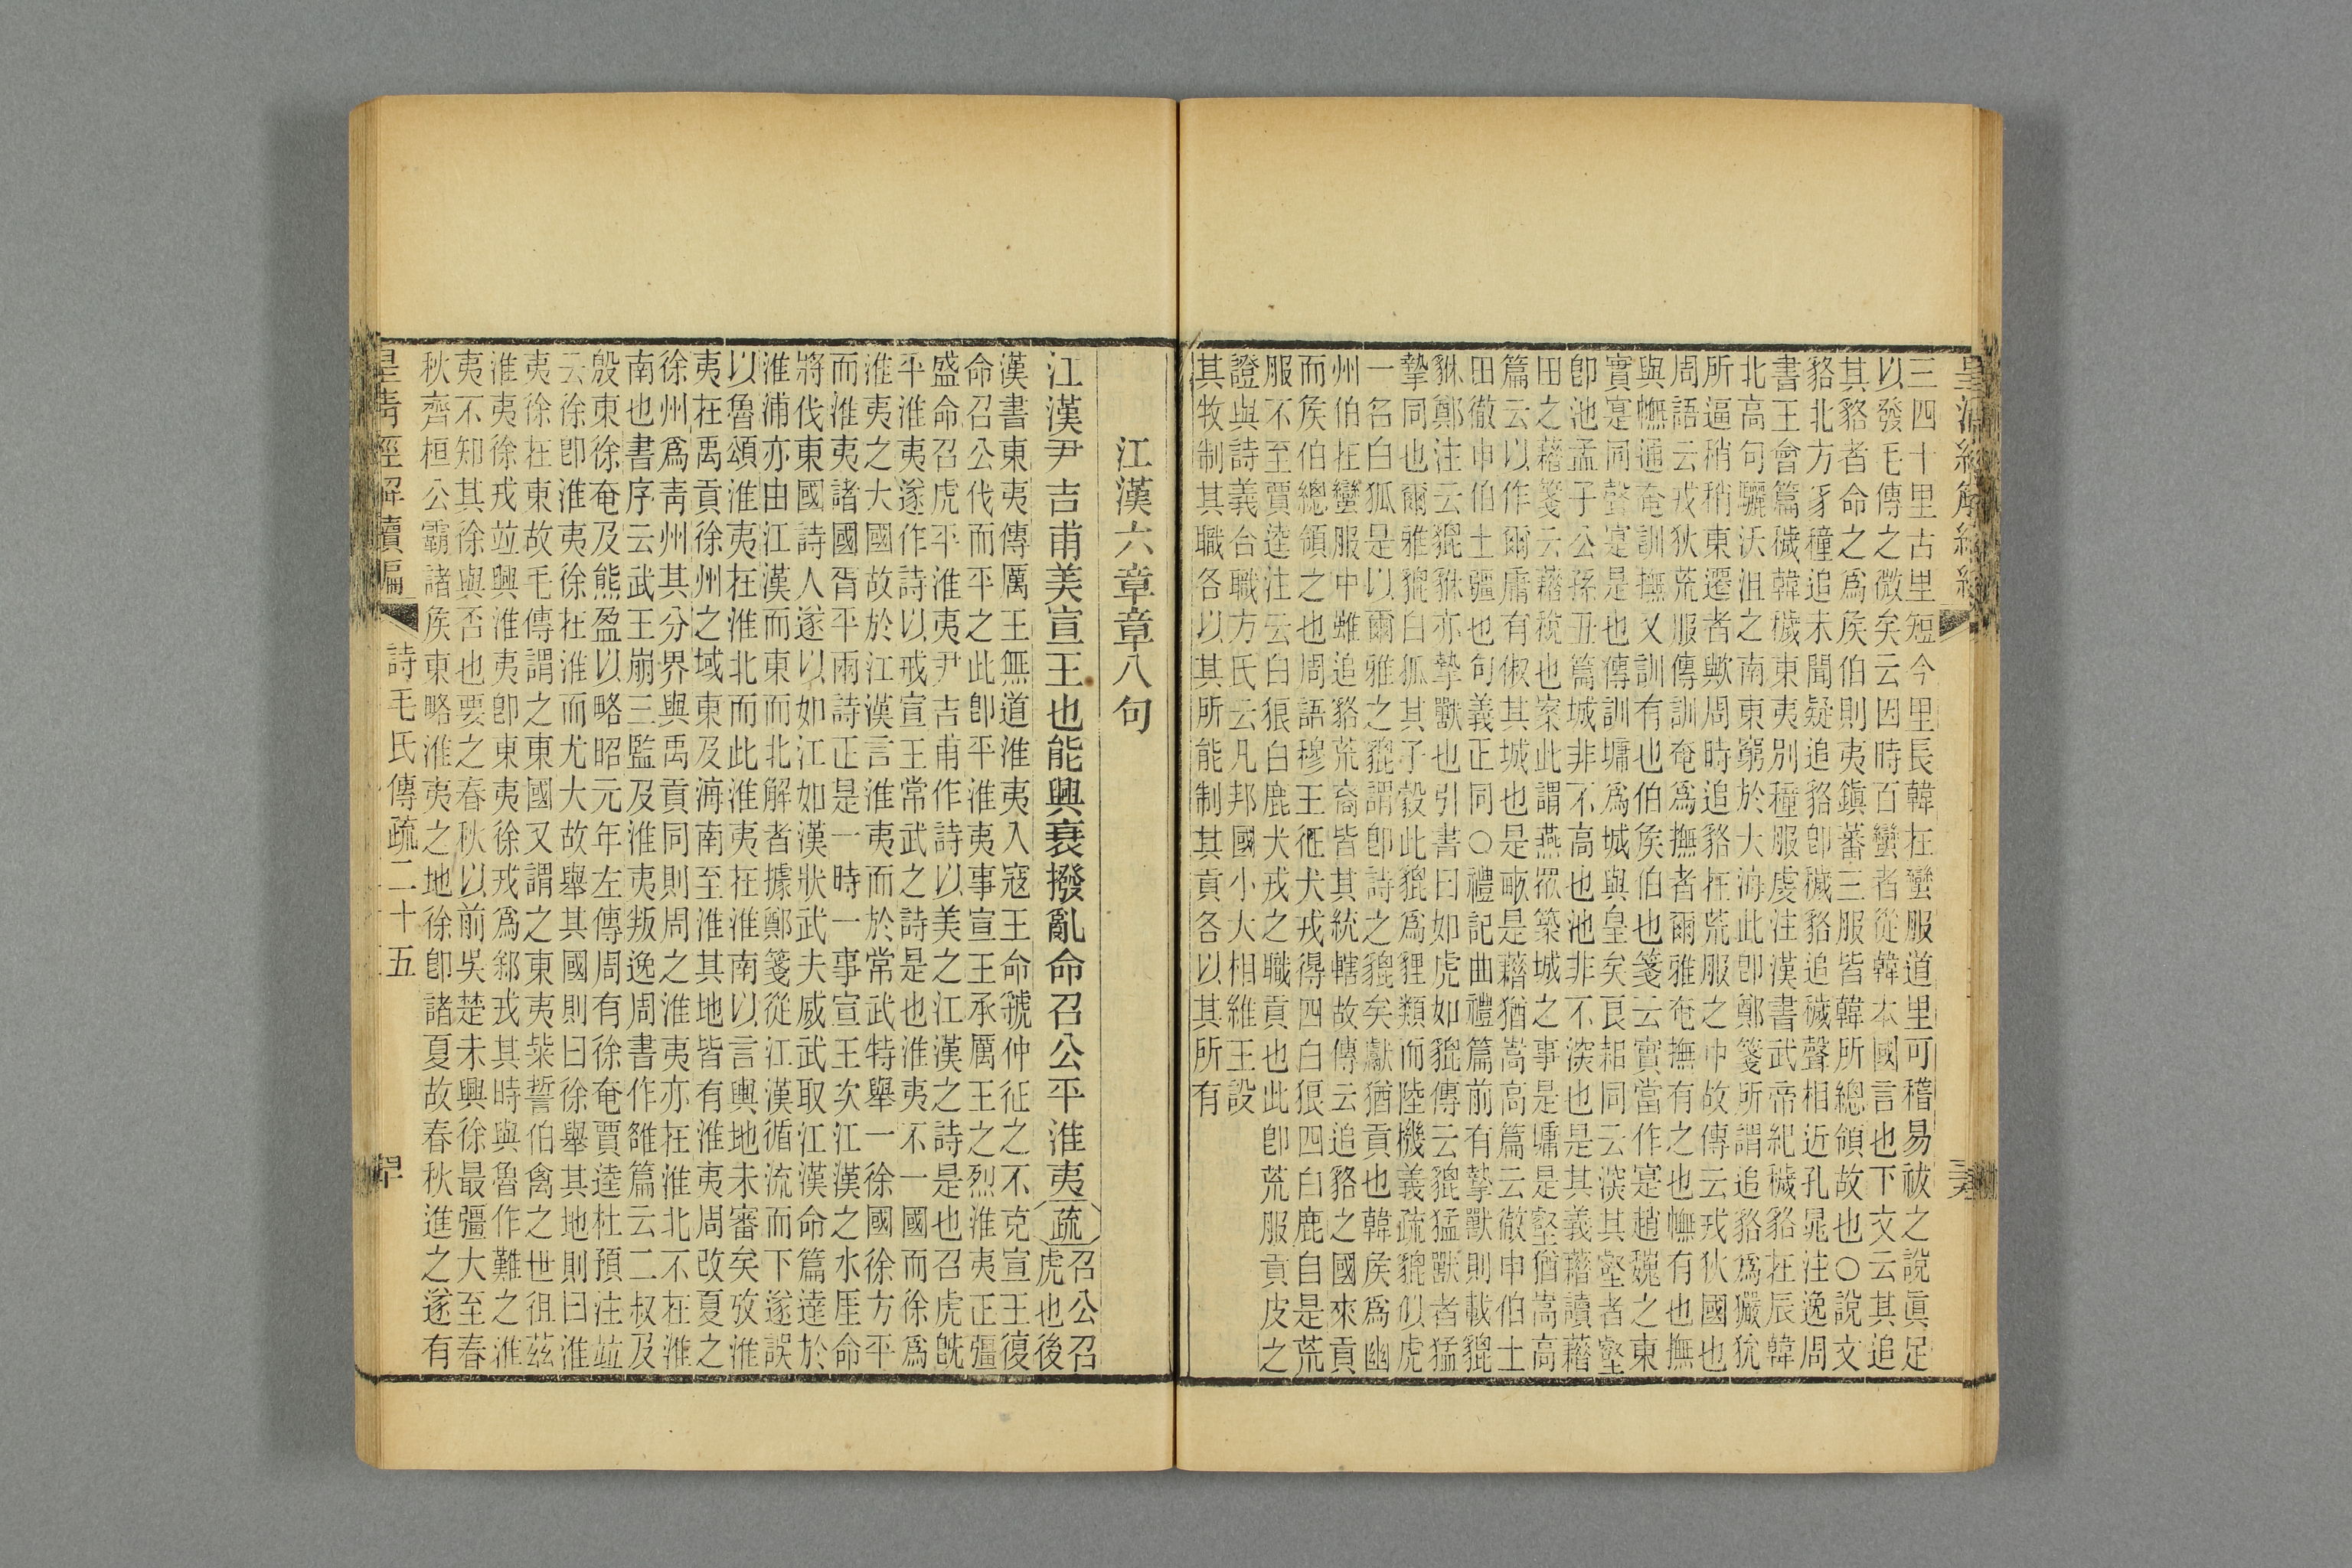 皇清經解續編
三六
三四十里古里短今里長韓在蠻服道里可稽易祓之說眞足
以發毛傳之微矣云因時百蠻者從韓本國言也下文云其追
其貉者命之爲矦伯則夷鎭蕃三服皆韓所總領故也○說文
貉北方豸穜追未聞疑追貉卽穢貉追穢聲相近孔晁注逸周
書王會篇穢韓穢東夷別種服虔注漢書武帝紀穢貉在辰韓
北高句驪沃沮之南東窮於大海此卽鄭箋所謂追貉爲玁狁
所逼稍稍東遷者歟周時追貉在荒服之中故傳云戎狄國也
周語云戎狄荒服傳訓奄爲撫者爾雅奄撫有之也幠有也撫
與幠通奄訓撫又訓有也伯矦伯也箋云實當作寔趙魏之東
實寔同聲寔是也傳訓墉爲城與皇矣良耜同云深其壑者壑
卽池孟子公孫丑篇城非不高也池非不深也是其義藉讀藉
田之藉箋云藉稅也案此謂燕眾築城之事是墉是壑猶嵩高
篇云以作爾庸有俶其城也是畝是藉猶嵩高篇云徹申伯土
田徹申伯土疆也句義正同○禮記曲禮篇前有摯獸則載貔
貅鄭注云貔貅亦摯獸也引書曰如虎如貔傳云貔猛獸者猛
摯同也爾雅貔白狐其子豰此貔爲貍類而陸機義疏貔似虎
一名白狐是以爾雅之貔謂卽詩之貔矣獻猶貢也韓矦爲幽
州伯在蠻服中雖追貉荒裔皆其統轄故傳云追貉之國來貢
而矦伯總領之也周語穆王征犬戎得四白狼四白鹿自是荒
服不至賈逵注云白狼白鹿犬戎之職貢也此卽荒服貢皮之
證與詩義合職方氏云凡邦國小大相維王設
其牧制其職各以其所能制其貢各以其所有
江漢六章章八句
江漢尹吉甫美宣王也能興衰撥亂命召公平淮夷疏召公召
虎也後
漢書東夷傳厲王無道淮夷入寇王命虢仲征之不克宣王復
命召公伐而平之此卽平淮夷事宣王承厲王之烈淮夷正彊
盛命召虎平淮夷尹吉甫作詩以美之江漢之詩是也召虎旣
平淮夷遂作詩以戒宣王常武之詩是也淮夷不一國而徐爲
淮夷之大國故於江漢言淮夷而於常武特舉一徐國徐方平
而淮夷諸國胥平兩詩正是一時一事宣王次江漢之水厓命
將伐東國詩人遂以如江如漢狀武夫威武取江漢命篇達於
淮浦亦由江漢而東而北解者據鄭箋從江漢循流而下遂誤
以魯頌淮夷在淮北而此淮夷在淮南以言輿地未審矣攷淮
夷在禹貢徐州之域東及海南至淮其地皆有淮夷周改夏之
徐州爲靑州其分界與禹貢同則周之淮夷亦在淮北不在淮
南也書序云武王崩三監及淮夷叛逸周書作雒篇云二叔及
殷東徐奄及熊盈以略昭元年左傳周有徐奄賈逵杜預注竝
云徐卽淮夷徐在淮而尤大故舉其國則曰徐舉其地則曰淮
夷徐在東故毛傳謂之東國又謂之東夷柴誓伯禽之世徂茲
淮夷徐戎竝興淮夷卽東夷徐戎爲郯戎其時與魯作難之淮
夷不知其徐與否也要之春秋以前吳楚未興徐最彊大至春
秋齊桓公霸諸矦東略淮夷之地徐卽諸夏故春秋進之遂有
皇青經解續編
詩毛氏傳疏二十五